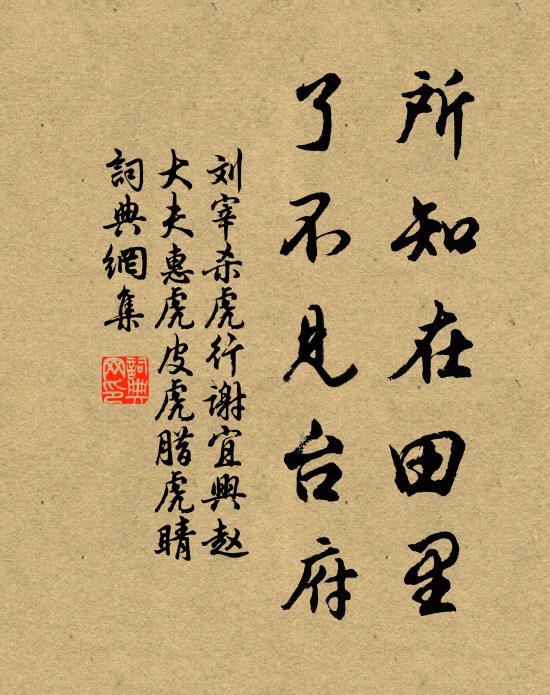 所知在田里
了不见台府
刘宰杀虎行谢宜興赵
大夫惠虎皮虎腊虎睛
詞典網集
詞典网印